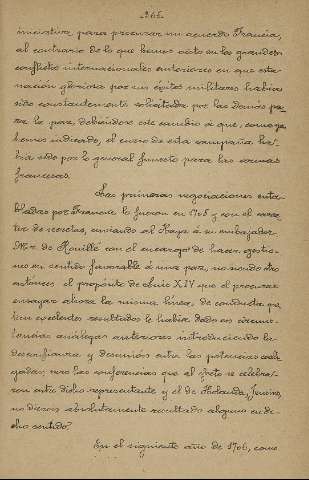 265.
iniciativa para procurar un acuerdo Francia,
al contrario de lo que hemos visto en los grandes
conflictos internacionales anteriores en que esta
nacion gloriosa por sus éxitos militares habia
sido constantemente solicitada por las demás pa-
ra la paz, debiéndose este cambio á que, como ya
hemos indicado, el curso de esta campaña ha-
bia sido por lo general funesto para las armas
francesas.
Las primeras negociaciones enta-
bladas por Francia lo fueron en 1705 y con el carac-
ter de secretas, enviando al Haya á su embajador
Mr. de Rouillé con el encargo de hacer gestio-
nes en sentido favorable á una paz, no siendo otro
entónces el propósito de Luis XIV que el procurar
ensayar ahora la misma línea de conducta que
tan excelentes resultados le habia dado en circuns-
tancias análogas anteriores introduciendo la
desconfianza y desunión entre las potencias coali-
gadas; pero las conferencias que al efecto se celebra-
ron entre dicho representante y el de Holanda,
no dieron absolutamente resultado alguno en di-
cho sentido.
En el siguiente año de 1706, como